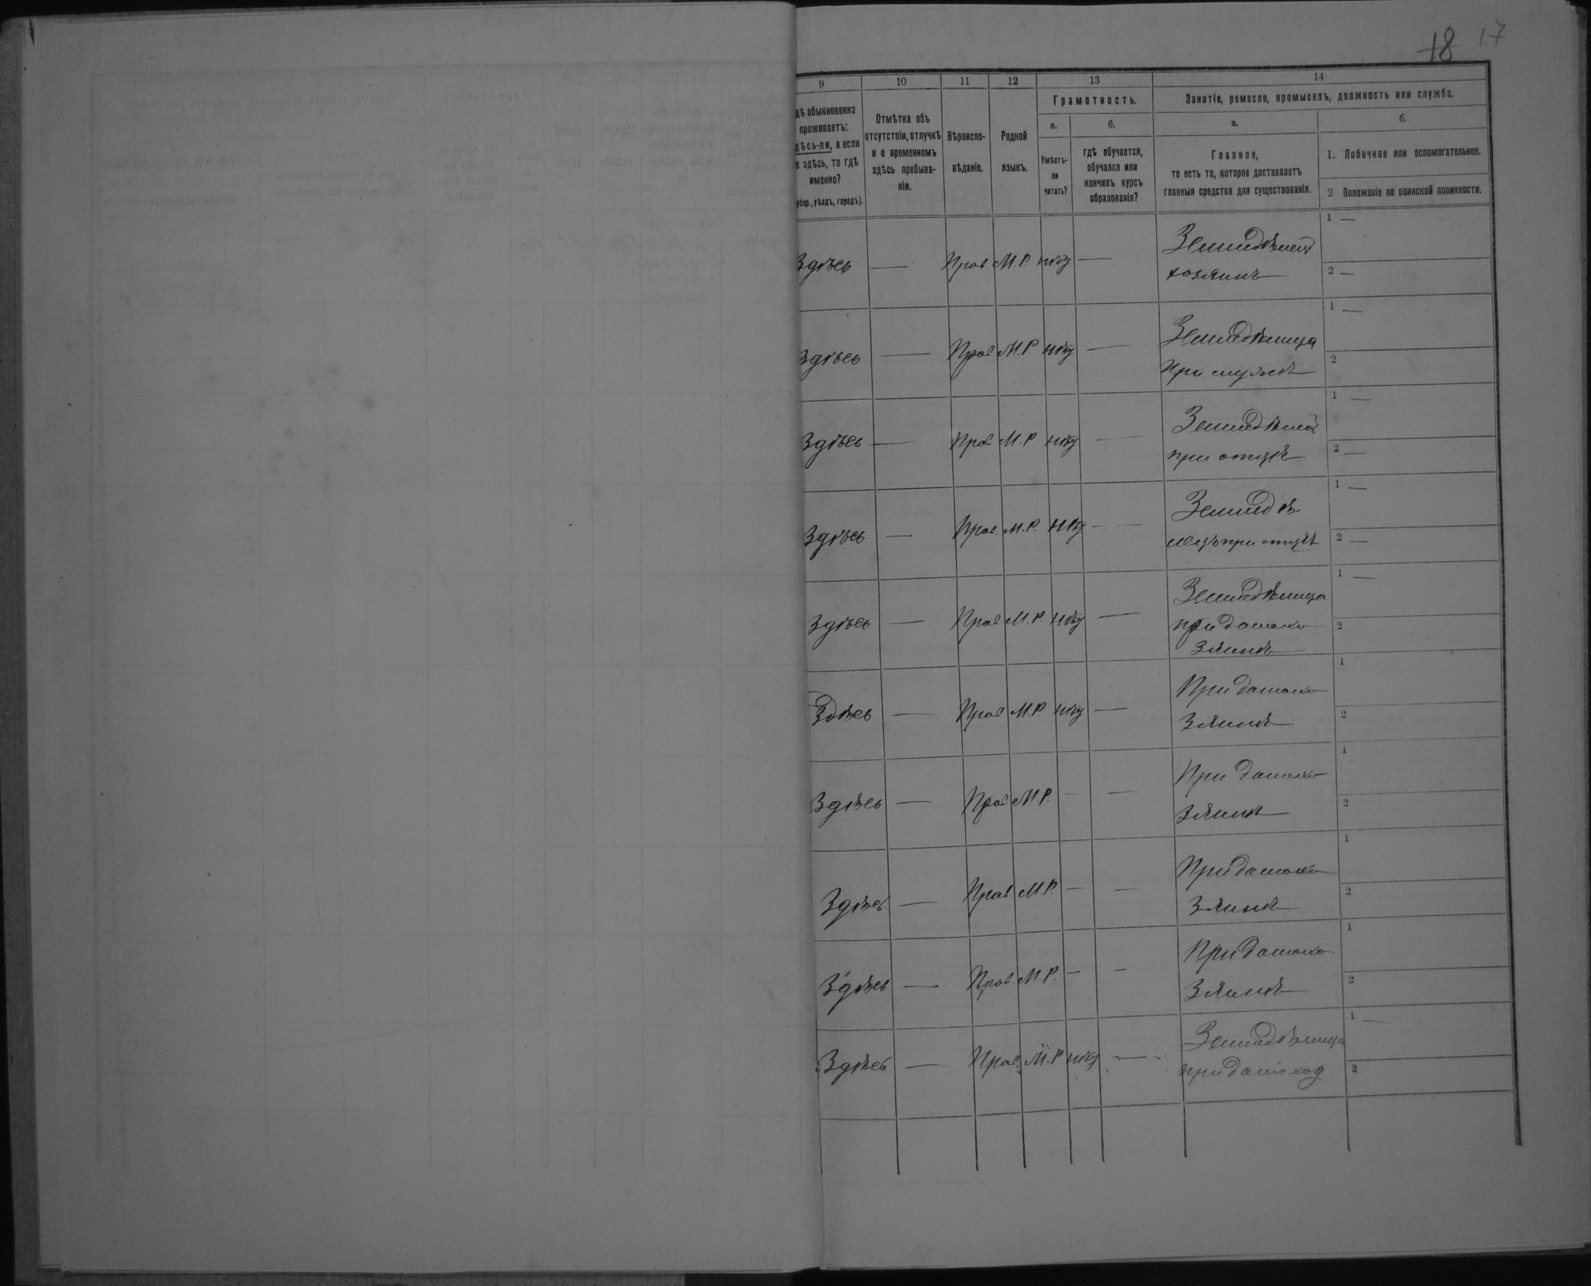 18 17
9 10 11 12 13 14
Грамотность.
Занятіе, ремесло, промыселъ, должность или служба.
дѣ обыкновенно
проживаетъ:
дѣсь-ли, а если
е здѣсь, то гдѣ
именно?
убер., уѣздъ, городъ).
Отмѣтка объ
отсутствіи, отлучкѣ
и о временномъ
здѣсь пребыва-
ніи.
Вѣроиспо-
вѣданіе.
Родной
языкъ.
а.
Умѣетъ-
ли
читать?
б.
гдѣ обучается,
обучался или
кончилъ курсъ
образованія?
а.
Главное,
то есть то, которое доставляетъ
главныя средства для существованія.
б.
1. Побочное или вспомогательное.
2 Положеніе по воинской повинности.
Здѣсь — Прав М.Р. нѣту — 1 —
хозяинъ 2 —
Здѣсь — Прав М.Р нѣту — Земледѣлица 1 —
при мужѣ 2
Здѣсь — Прав М.Р нѣту — 1 —
при отцѣ 2 —
Здѣсь — Прав. М.Р. нѣту — Земледѣ 1 —
лецъ при отцѣ 2 —
Здѣсь — Прав М.Р. нѣту — Земледѣлица 1 —
при домохо 2
зяинѣ
Здѣсь — Прав М.Р. нѣту — При домохо 1
зяинѣ 2
Здѣсь — Прав М.Р. - — При домохо 1
зяинѣ 2
Здѣсь — Прав М.Р. — — При домохо 1
зяинѣ 2
Здѣсь — Прав. М.Р. — — При домохо 1
зяинѣ 2
Здѣсь — Прав. М.Р нѣту — Земледѣлица 1 —
при домохоз 2